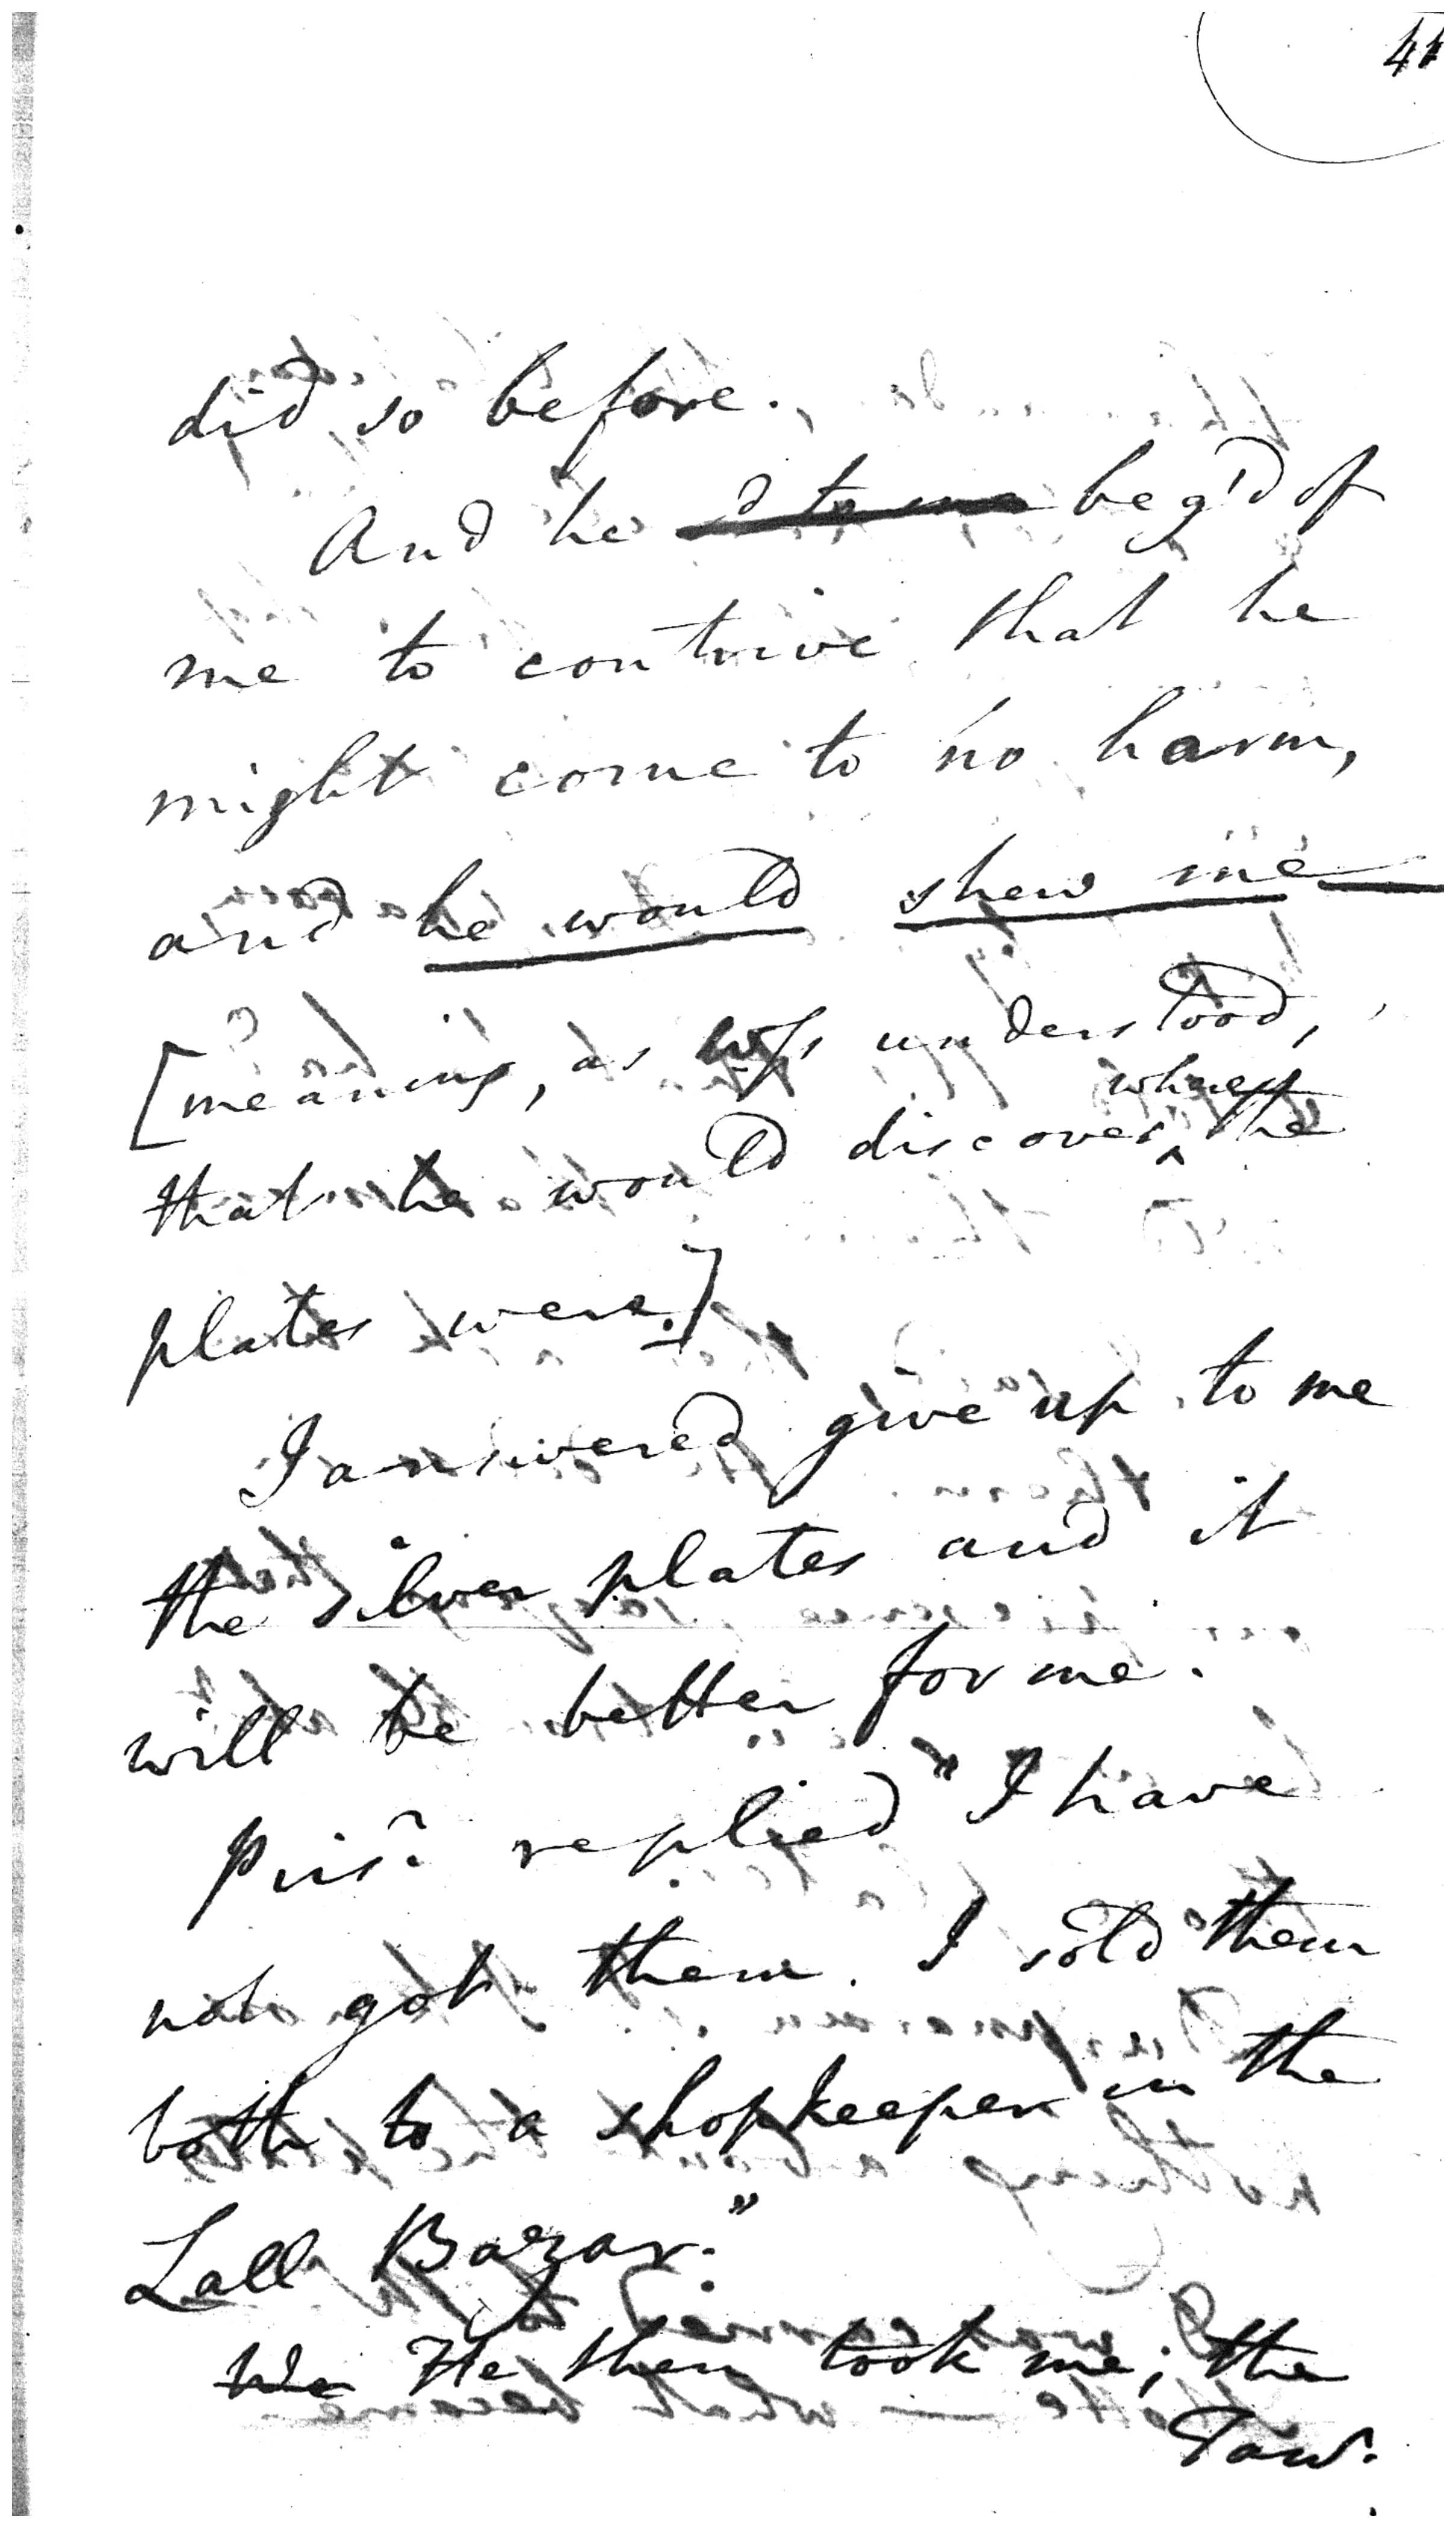 41
did so before.
And he beg'd of
me to contrive that he
might come to no harm,
and he would shew me —
[meaning, as was understood,
where
that he would discover ^ the
plates were.]
I answered give up to me
the silver plates and it
will be better for me.
Pris.r replied "I have
not got them. I sold them
both to a shopkeeper in the
Lall Bazar."
We He then took me; the
Taw.